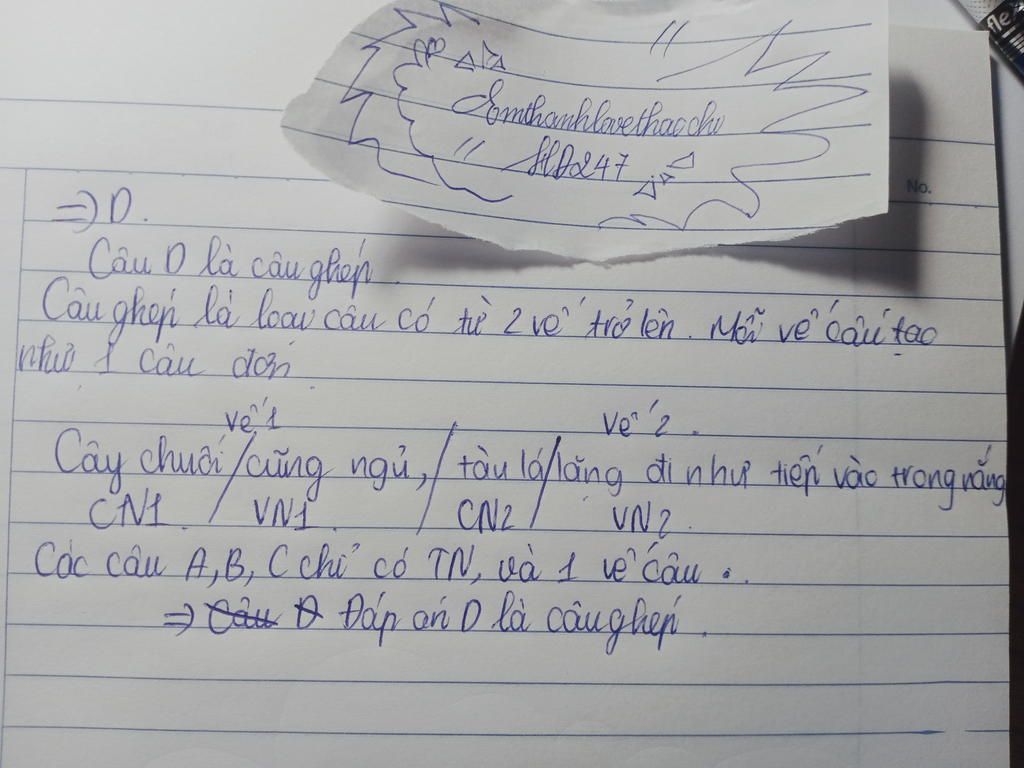 Emthanhlovethaochi
HD247
No.
flex
=> D.
Câu D là câu ghép.
Câu ghép là loại câu có từ 2 vế trở lên. Mỗi vế cấu tạo
như 1 câu đơn.
vế 1 vế 2.
Cây chuối / cũng ngủ, / tàu lá / lặng đi như tiếp vào trong nắng
CN1. / VN1. / CN2 / VN2.
Các câu A, B, C chỉ có TN, và 1 vế câu.
=> Đáp án D là câu ghép.